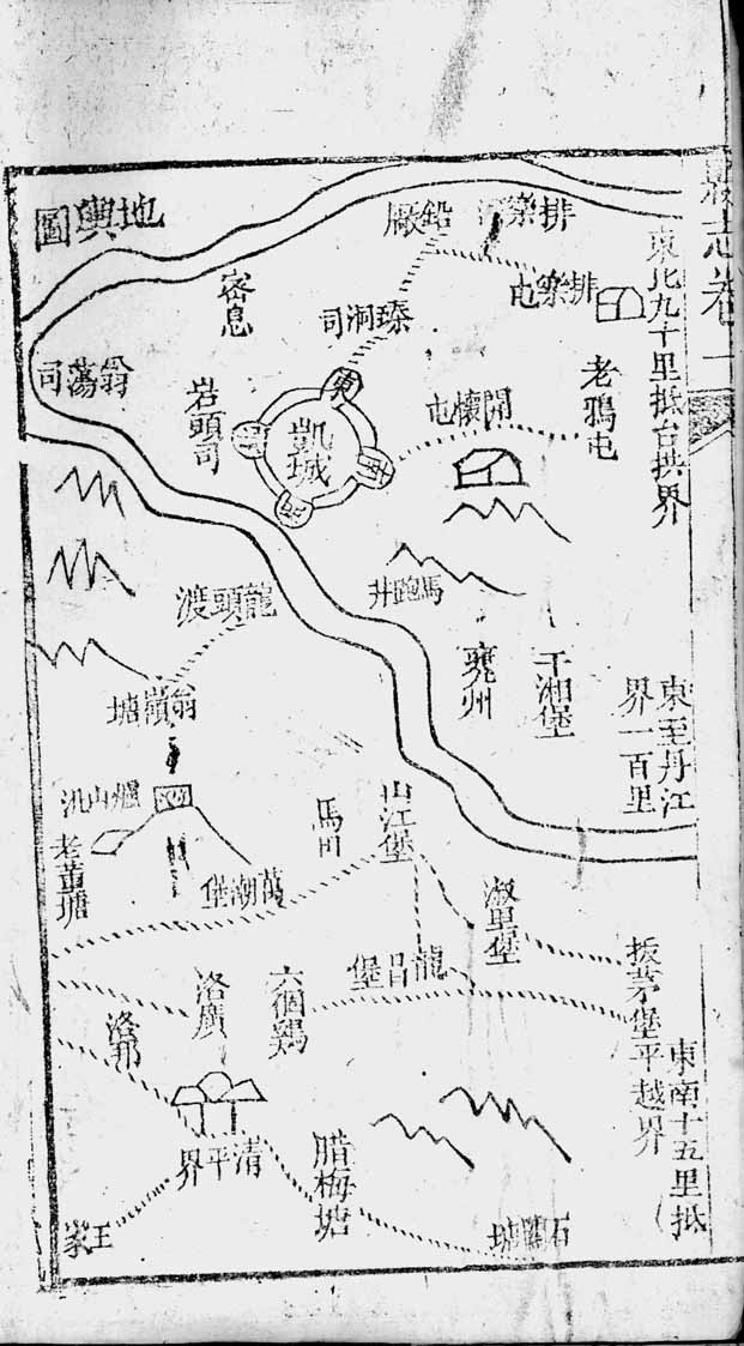 縣志卷一
地輿圖
東北九十里抵台拱界
東至丹江
界一百里
東南十五里抵
平越界
排樂河
鉛廠
排樂屯
密息
瑧洞司
翁蕩司
岩頭司
老鴉屯
開懷屯
凱城
東
南
西
北
馬跑井
龍頭渡
雍州
干湘堡
翁嶺塘
爐山汛
老董塘
萬潮堡
馬田
山江堡
淑里堡
龍昌堡
拔茅堡
六個鷄
洛廣
洛邦
清平界
腊梅塘
石關塘
王家